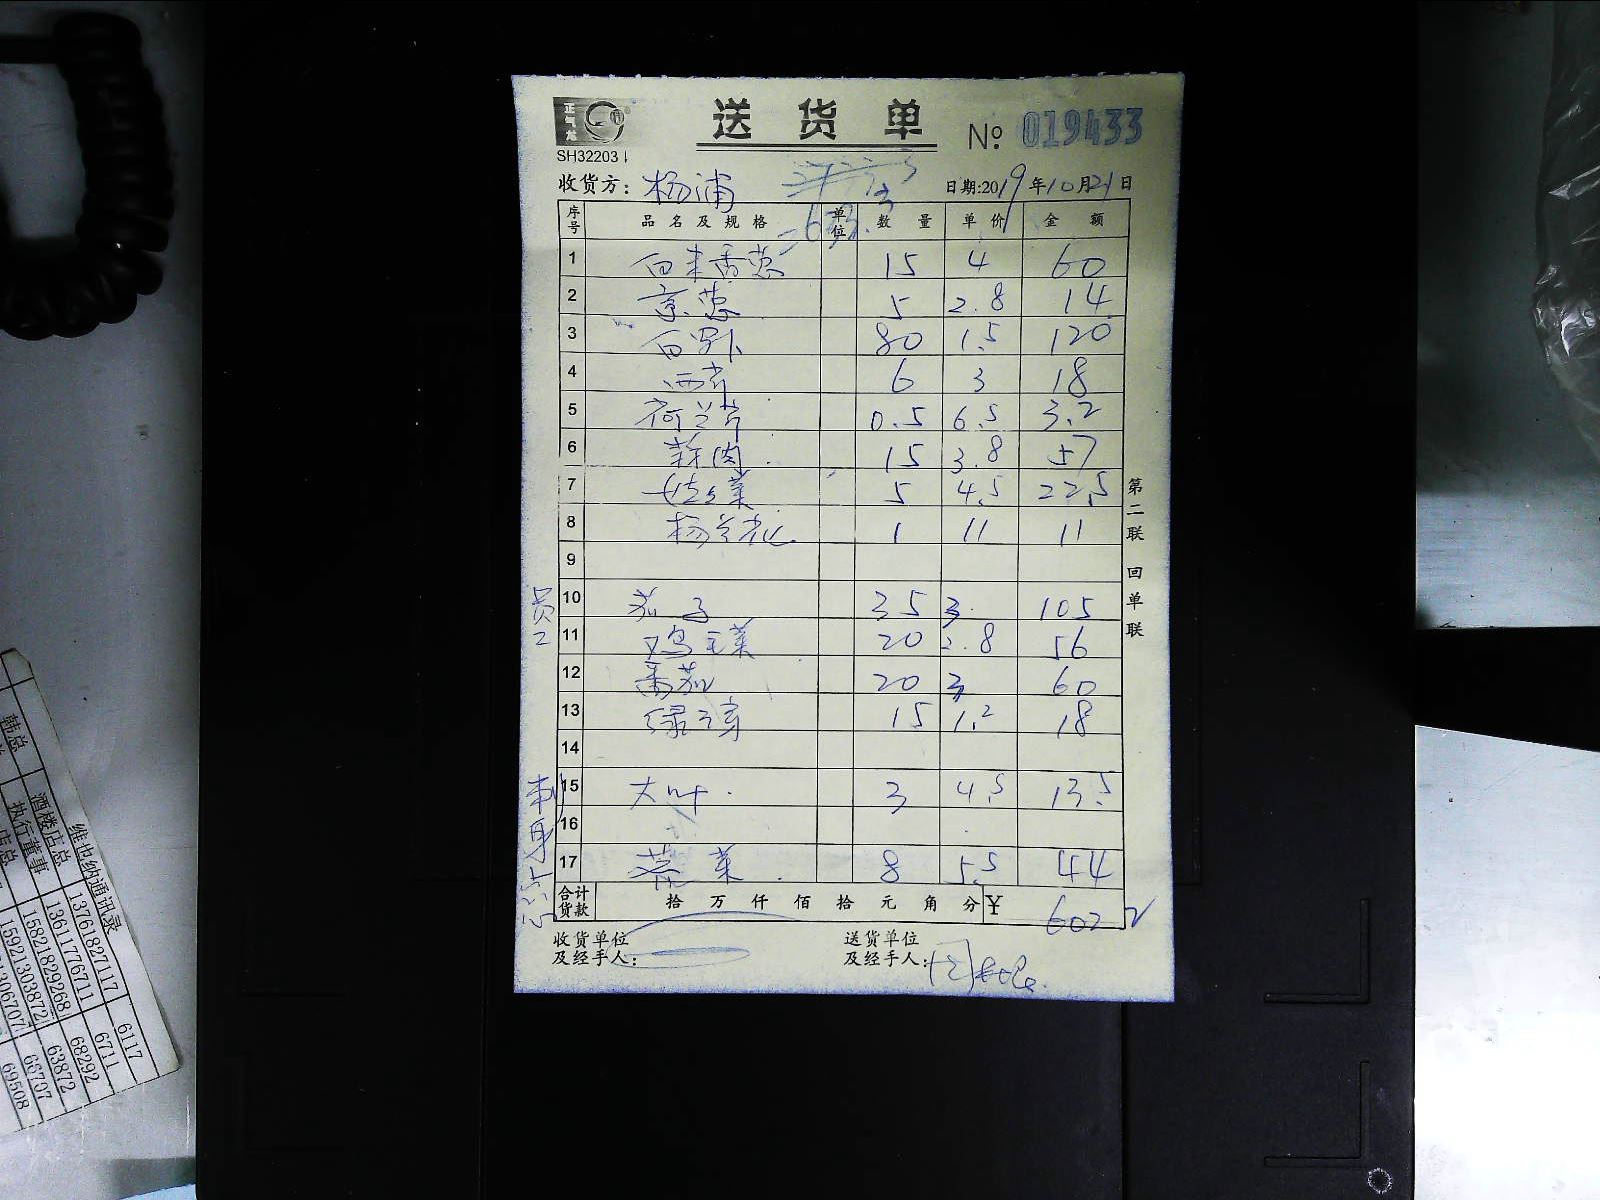 正气龙
SH32203
送货单
№ 019433
收货方: 杨浦
日期:2019年10月21日
序号 品名及规格 单位 数量 单价 金额
1 白米香葱 15 4 60
2 京葱 5 2.8 14
3 白罗卜 80 1.5 120
4 西芹 6 3 18
5 荷兰芹 0.5 6.5 3.2
6 蒜肉 15 3.8 57
7 5 4.5 22.5
8 杨兰花 1 11 11
9
员工
10 茄子 35 3 105
11 鸡毛菜 20 2.8 56
12 番茄 20 3 60
13 绿豆芽 15 1.2 18
14
15 大叶 3 4.5 13.5
16
17 菜 8 5.5 44
合计货款 拾万仟佰拾元角分 ¥ 602.2
收货单位及经手人:
送货单位及经手人:
第二联 回单联
维也纳通讯录
韩总
酒楼店总 13761827117 6117
执行董事 13611776711 6711
店总 15821829268 68292
15921303872 63872
66707
69508